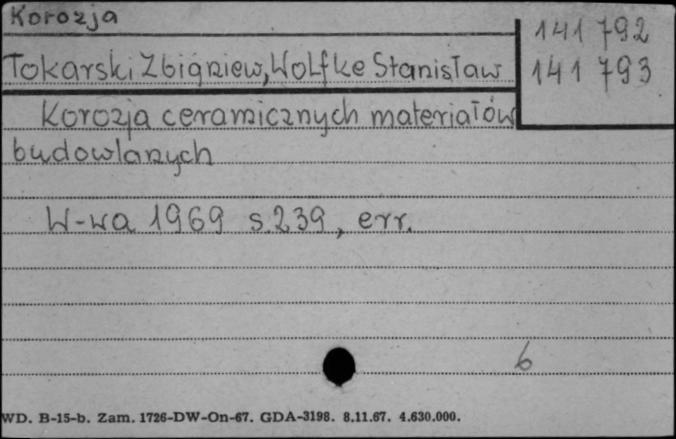 Korozja
141 792
Tokarski Zbigniew, Wolfke Stanisław
141 793
Korozja ceramicznych materiałów
budowlanych
W-wa 1969 s. 239, err.
6
WD. B-15-b. Zam. 1726-DW-On-67. GDA-3198. 8.11.67. 4.630.000.